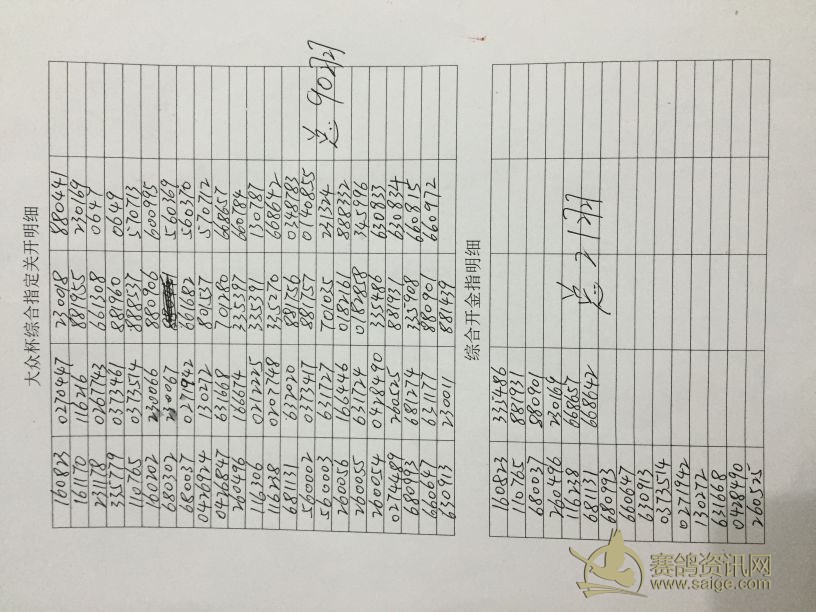 大众杯综合指定关开明细
160823 0270447 230018 880441
161170 116216 881955 230169
231178 0267743 661368 0647
335779 0373461 881960 0649
110765 0373514 888537 570713
160202 230066 880906 600995
680302 230067 560369
680037 0271942 661682 560370
0426924 130272 801537 570712
0426847 631668 701280 668657
260496 166674 335397 660784
116306 0212225 335391 130787
116238 0207748 335270 668642
681131 632020 881756 0348783
560002 0373417 881757 0140855
560003 631727 701035 231324
260056 166446 0182161 888332
260055 631724 0182858 345996
260054 0428490 335486 630833
0274489 260525 881931 630834
680793 681274 335908 660815
660647 631177 880901 660972
630913 230011 881439
总:90羽
综合开金指明细
160823 335486
110765 881931
680037 880901
260496 230169
116238 668657
681131 668642
680793
660647
630913
0373514
0271942
130272
631668
0428490
260525
总:21羽
赛鸽资讯网
www.saige.com